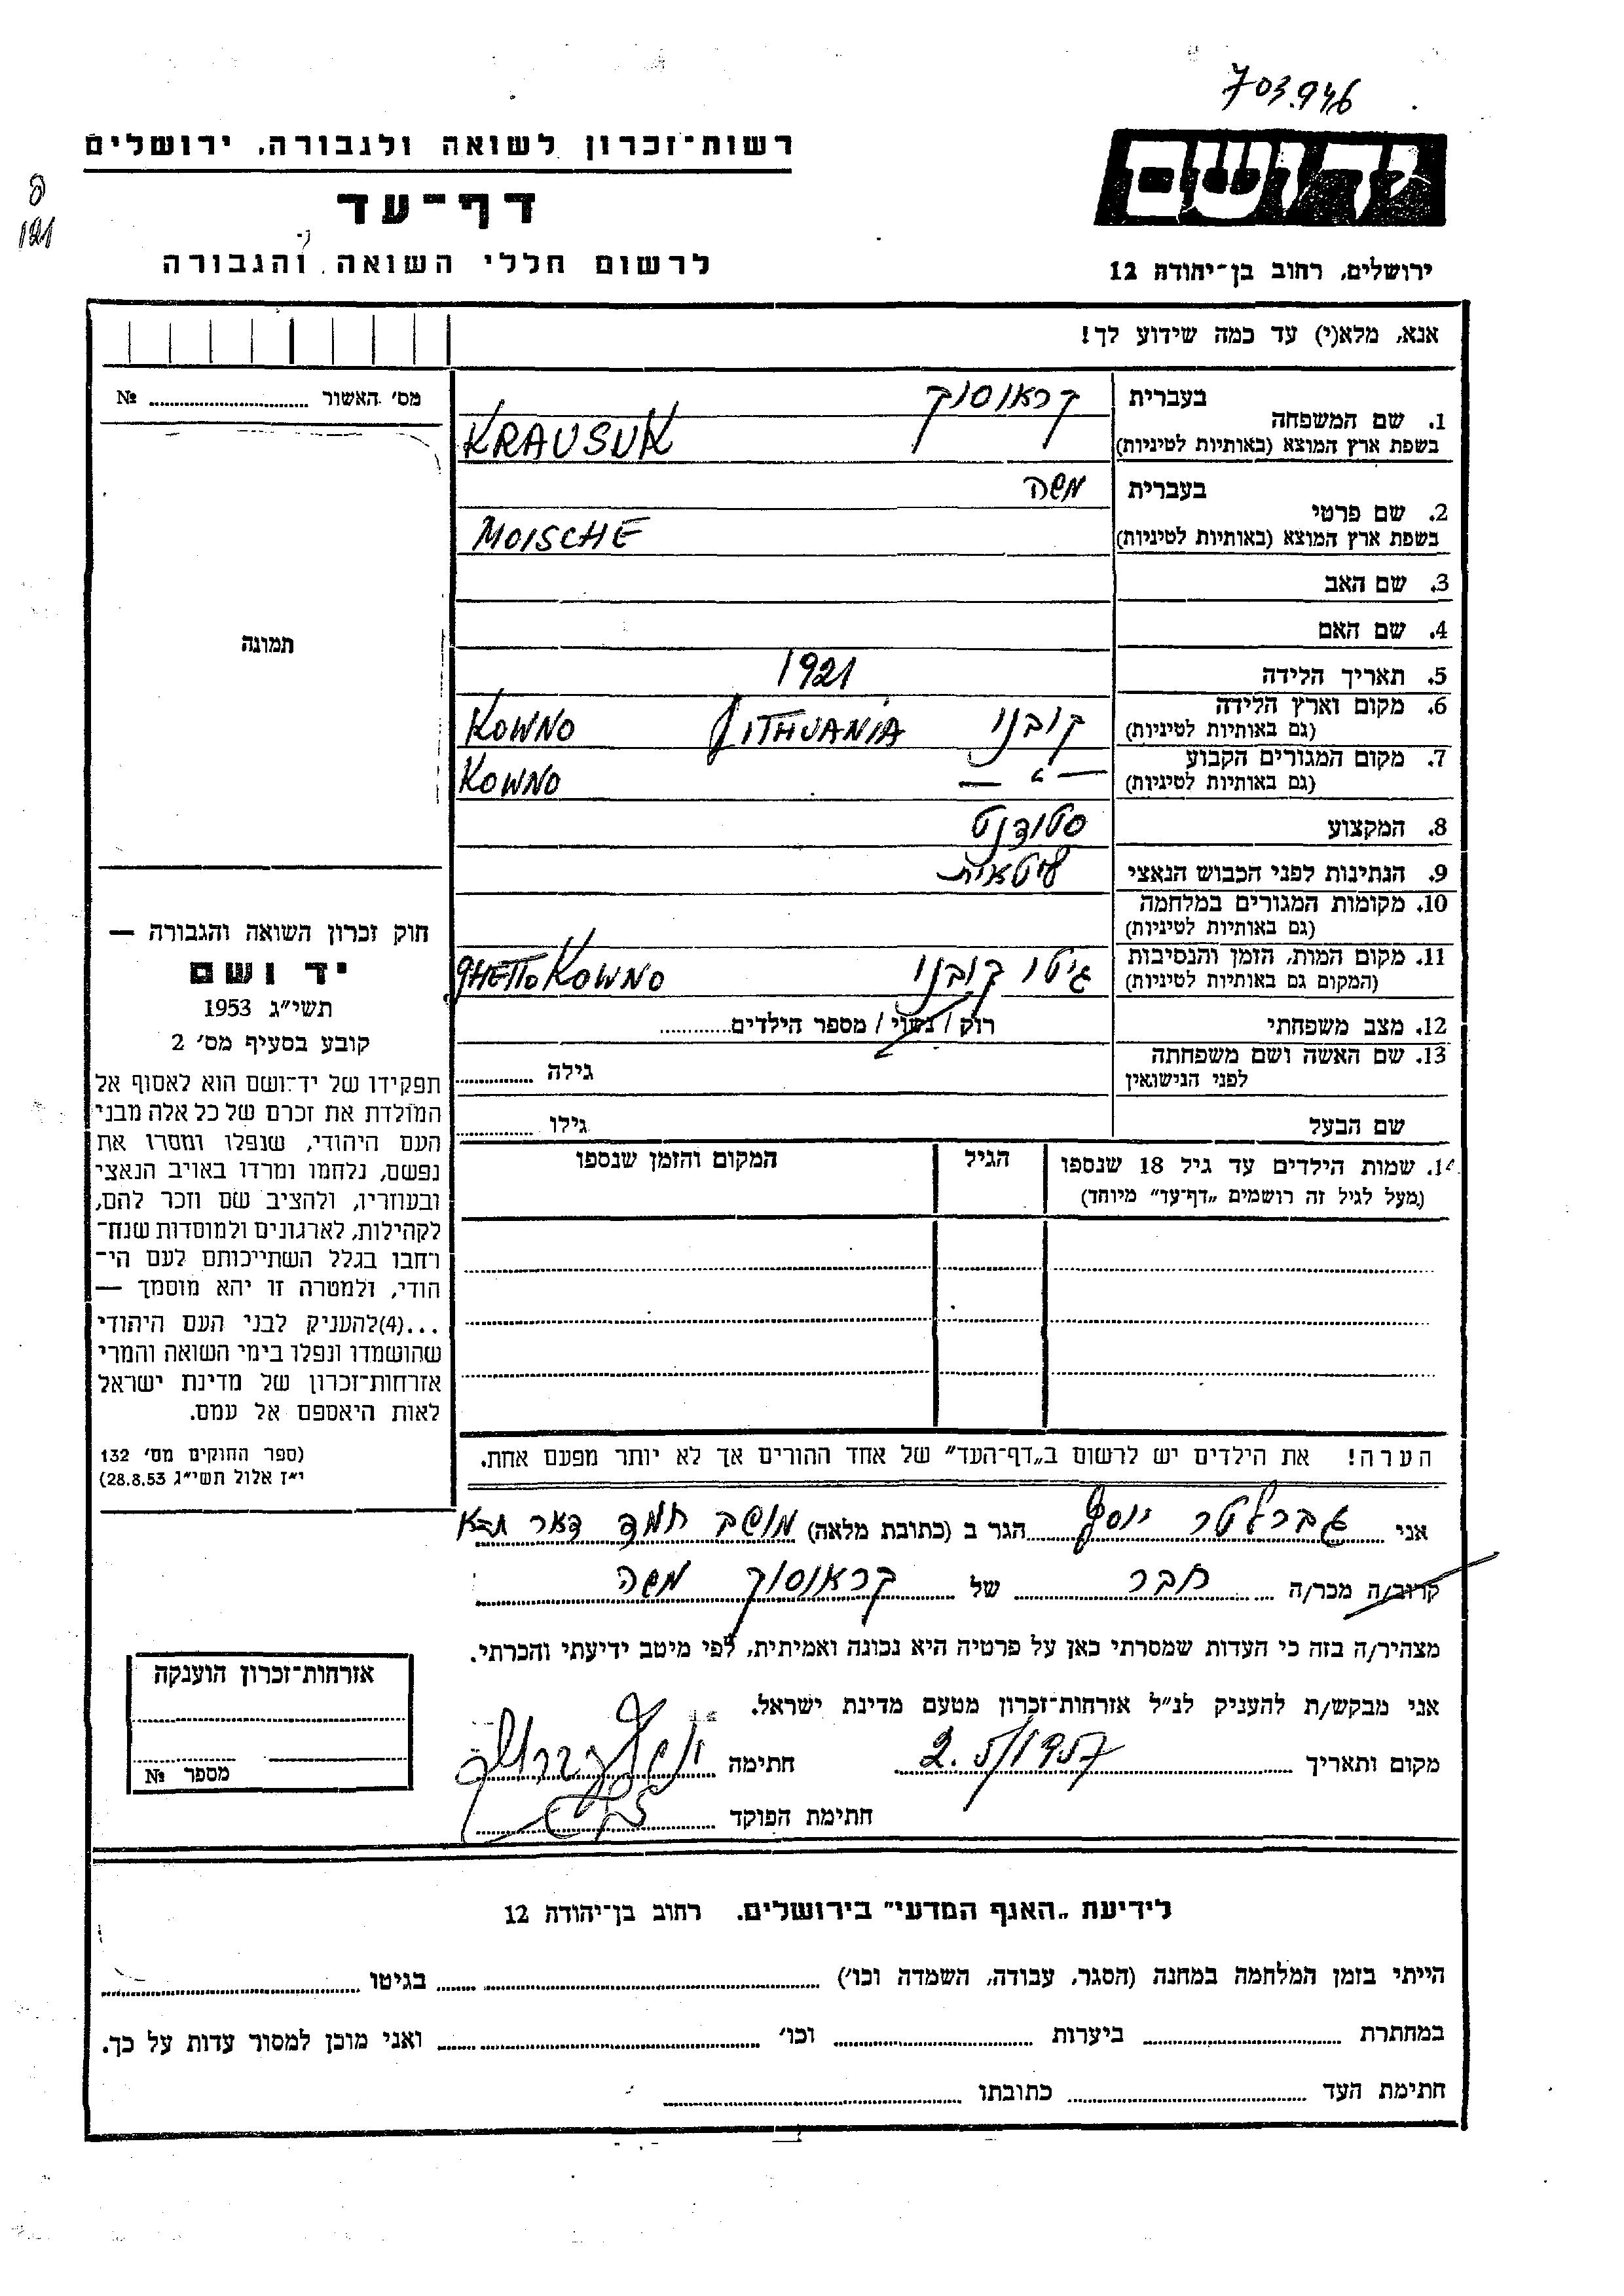 703.946
רשות־זכרון לשואה ולגבורה, ירושלים
דף־עד
לרשום חללי השואה והגבורה
ידושם
ירושלים, רחוב בן־יהודה 12
121
אנא, מלא(י) עד כמה שידוע לך!
מס׳ האשור № ...............
תמונה
1. שם המשפחה
בעברית קראוסוק
בשפת ארץ המוצא (באותיות לטיניות) KRAUSUK
2. שם פרטי
בעברית משה
בשפת ארץ המוצא (באותיות לטיניות) MOISCHE
3. שם האב
4. שם האם
5. תאריך הלידה 1921
6. מקום וארץ הלידה קובנו LITHUANIA KOWNO
(גם באותיות לטיניות)
7. מקום המגורים הקבוע — " — KOWNO
(גם באותיות לטיניות)
8. המקצוע סטודנט
9. הנתינות לפני הכבוש הנאצי ליטאית
10. מקומות המגורים במלחמה
(גם באותיות לטיניות)
11. מקום המות, הזמן והנסיבות גיטו קובנו GHETTO KOWNO
(המקום גם באותיות לטיניות)
12. מצב משפחתי רוק / נשוי / מספר הילדים...........
13. שם האשה ושם משפחתה
לפני הנישואין גילה ...........
שם הבעל גילו ...........
14. שמות הילדים עד גיל 18 שנספו הגיל המקום והזמן שנספו
(מעל לגיל זה רושמים „דף־עד״ מיוחד)
הערה! את הילדים יש לרשום ב„דף־העד״ של אחד ההורים אך לא יותר מפעם אחת.
חוק זכרון השואה והגבורה —
יד ושם
תשי״ג 1953
קובע בסעיף מס׳ 2
תפקידו של יד־ושם הוא לאסוף אל
המולדת את זכרם של כל אלה מבני
העם היהודי, שנפלו ומסרו את
נפשם, נלחמו ומרדו באויב הנאצי
ובעוזריו, ולהציב שם וזכר להם,
לקהילות, לארגונים ולמוסדות שנח־
רחבו בגלל השתייכותם לעם הי־
הודי, ולמטרה זו יהא מוסמך —
...(4)להעניק לבני העם היהודי
שהושמדו ונפלו בימי השואה והמרי
אזרחות־זכרון של מדינת ישראל
לאות היאספם אל עמם.
(ספר החוקים מס׳ 132
י״ז אלול תשי״ג 28.8.53)
אני גברלטר יוסף הגר ב (כתובת מלאה) מושב חמד דאר
קרוב/ה מכר/ה חבר של קראוסוק משה
מצהיר/ה בזה כי העדות שמסרתי כאן על פרטיה היא נכונה ואמיתית, לפי מיטב ידיעתי והכרתי.
אני מבקש/ת להעניק לנ״ל אזרחות־זכרון מטעם מדינת ישראל.
מקום ותאריך 2.5/1957 חתימה
חתימת הפוקד
אזרחות־זכרון הוענקה
מספר №
לידיעת „האגף המדעי״ בירושלים, רחוב בן־יהודה 12
הייתי בזמן המלחמה במחנה (הסגר, עבודה, השמדה וכו׳) ............... בגיטו ...............
במחתרת ............... ביערות ............... וכו׳ ............... ואני מוכן למסור עדות על כך.
חתימת העד ............... כתובתו ...............